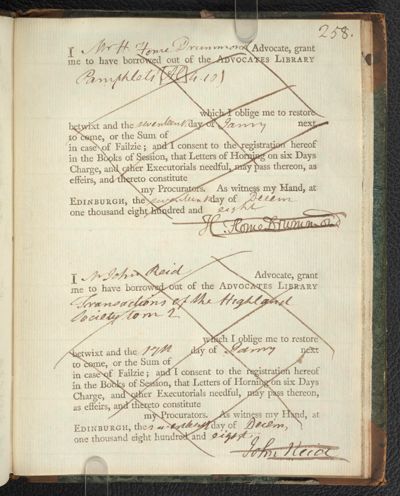 258.
I Mr H. Home Drummond Advocate, grant
me to have borrowed out of the ADVOCATES LIBRARY
Pamphlets
which I oblige me to restore
betwixt and the seventeenth day of Janry next
to come, or the Sum of
in case of Failzie; and I consent to the registration hereof
in the Books of Session, that Letters of Horning on six Days
Charge, and other Executorials needful, may pass thereon, as
effeirs, and thereto constitute
my Procurators. As witness my Hand, at
EDINBURGH, the seventeenth day of Decem
one thousand eight hundred and eight
H. Home Drummond
I Mr John Reid Advocate, grant
me to have borrowed out of the ADVOCATES LIBRARY
Transactions of the Highland
Society tom 2
which I oblige me to restore
betwixt and the 17th day of Janry next
to come, or the Sum of
in case of Failzie; and I consent to the registration hereof
in the Books of Session, that Letters of Horning on six Days
Charge, and other Executorials needful, may pass thereon,
as effeirs, and thereto constitute
my Procurators. As witness my Hand, at
EDINBURGH, the seventeenth day of Decem,
one thousand eight hundred and eight.
John Reid